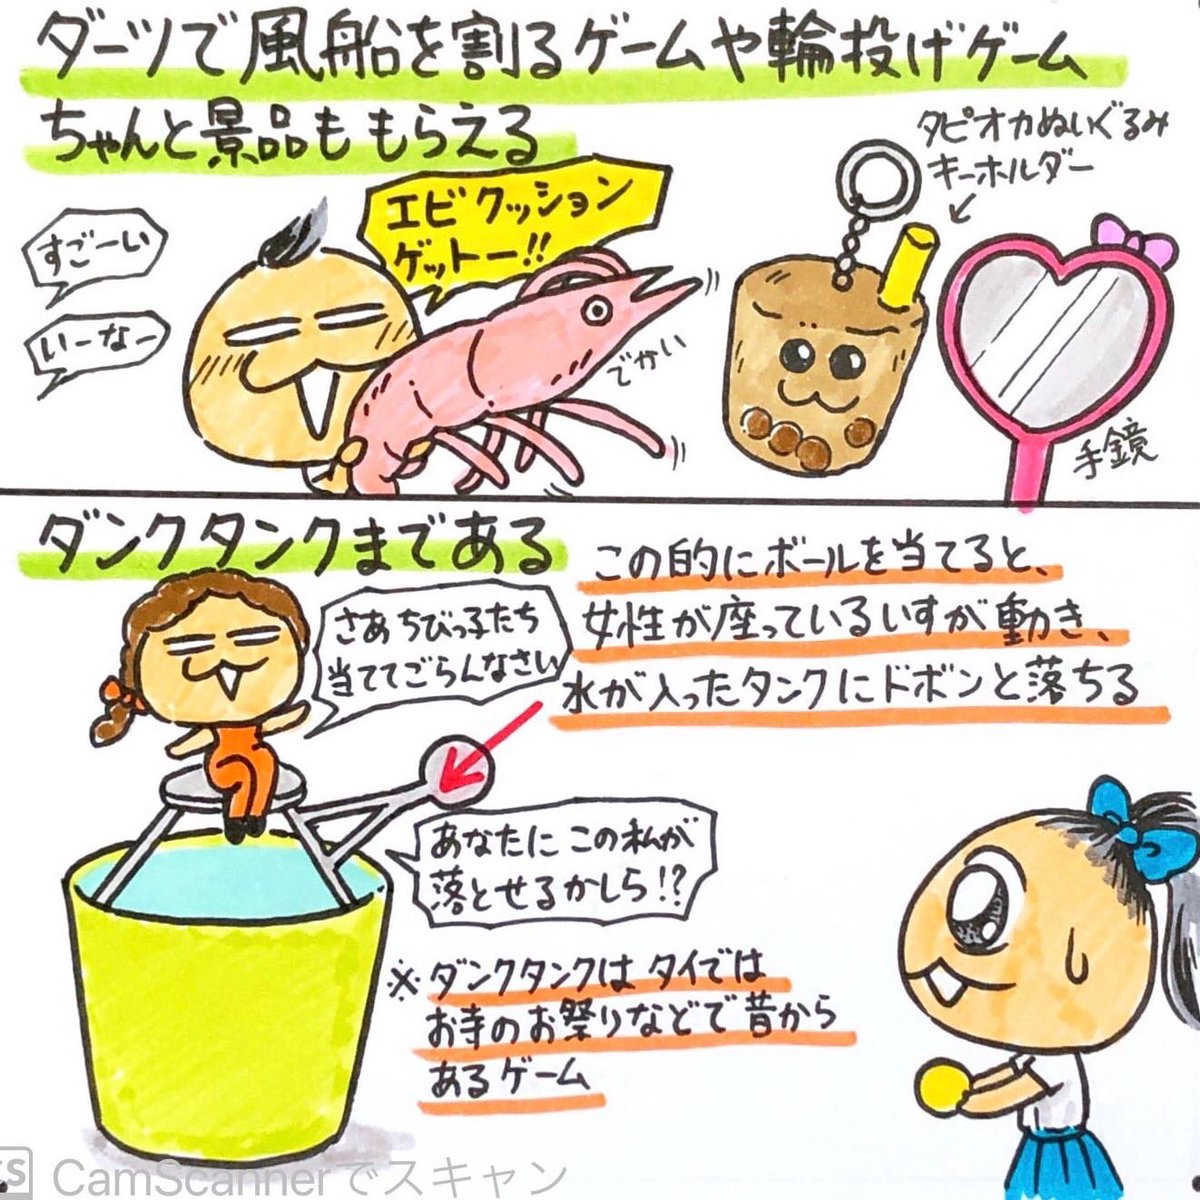 ダーツで風船を割るゲームや輪投げゲーム
ちゃんと景品ももらえる
タピオカぬいぐるみ
キーホルダー
すごーい
いーなー
エビクッション
ゲットー!!
でかい
手鏡
ダンクタンクまである
この的にボールを当てると、
女性が座っているいすが動き、
水が入ったタンクにドボンと落ちる
さあちびっ子たち
当ててごらんなさい
あなたにこの私が
落とせるかしら!?
※ダンクタンクはタイでは
お寺のお祭りなどで昔から
あるゲーム
CS CamScannerでスキャン